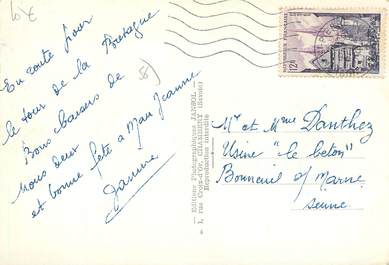 10€
En route pour
le tour de la Bretagne
Bons baisers de
nous deux
et bonne fête à Marie Jeanne
Janine
Editions Photographiques JANSOL
1, rue Croix-d'Or, CHAMBERY (Savoie)
Reproduction interdite
12F
Mr et Mme Danthez
Usine "le béton"
Bonneuil s/ Marne
Seine